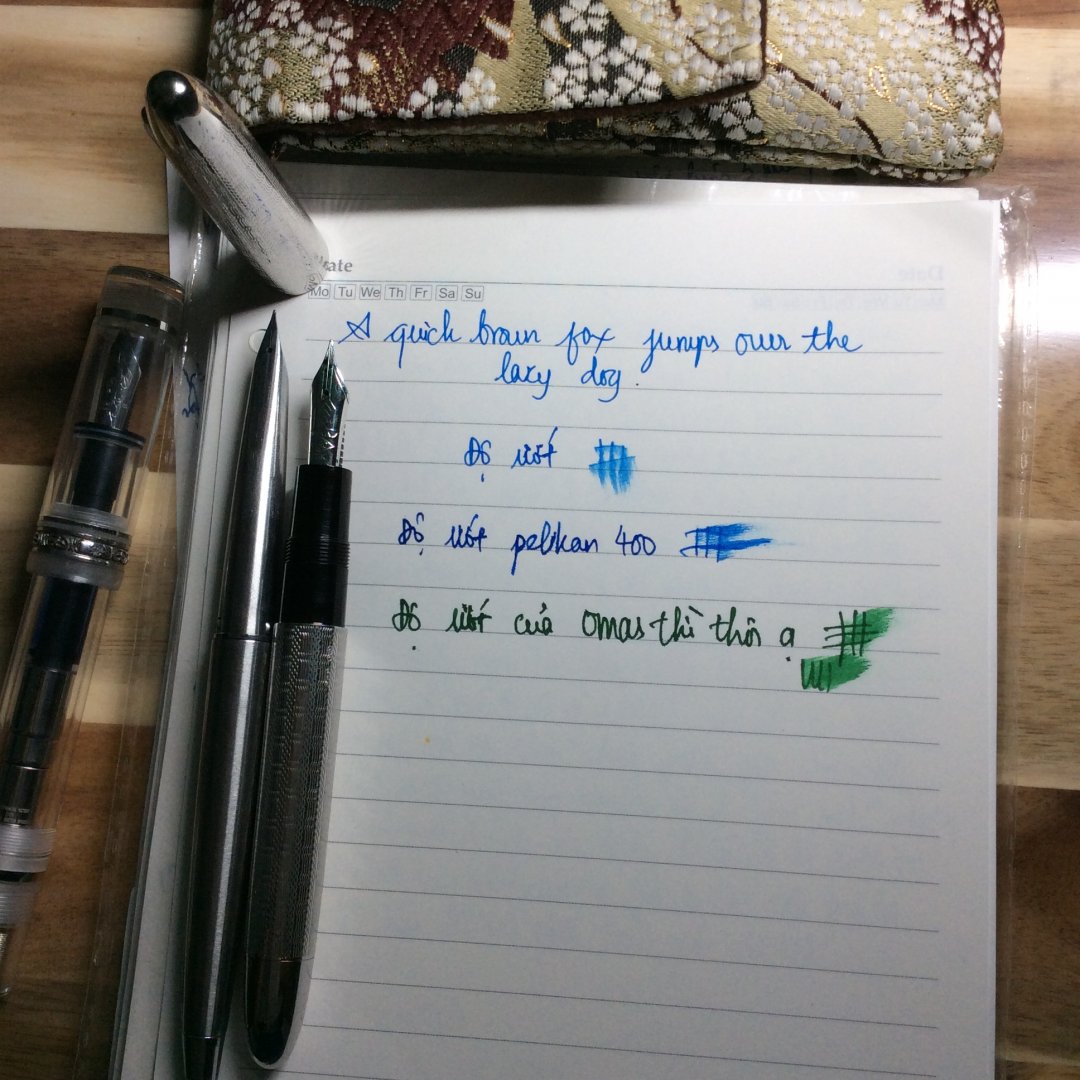 Date
Mo Tu We Th Fr Sa Su
A quick braun fox jumps over the
lazy dog.
Độ ướt
Độ ướt pelikan 400
Độ ướt của Omas thì thôi ạ